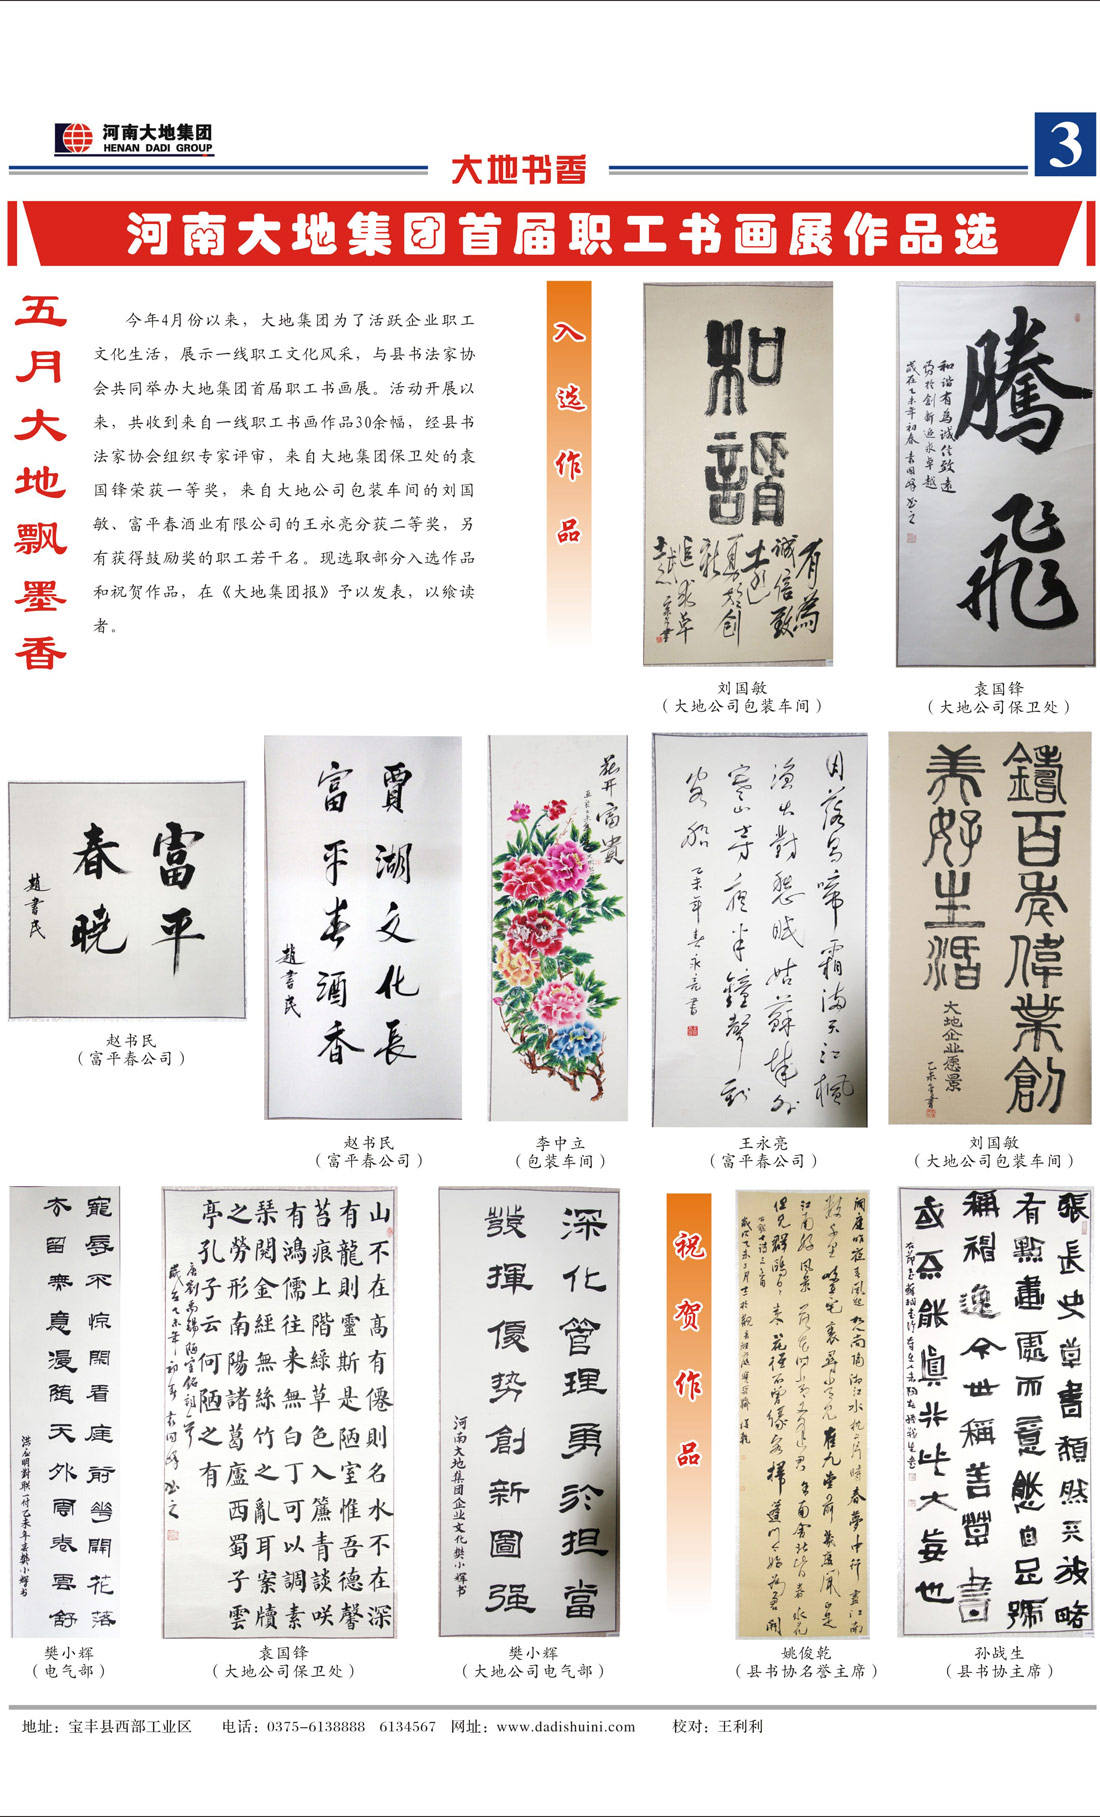 河南大地集团
HENAN DADI GROUP
大地书香
3
河南大地集团首届职工书画展作品选
五月大地飘墨香
今年4月份以来，大地集团为了活跃企业职工
文化生活，展示一线职工文化风采，与县书法家协
会共同举办大地集团首届职工书画展。活动开展以
来，共收到来自一线职工书画作品30余幅，经县书
法家协会组织专家评审，来自大地集团保卫处的袁
国锋荣获一等奖，来自大地公司包装车间的刘国
敏、富平春酒业有限公司的王永亮分获二等奖，另
有获得鼓励奖的职工若干名。现选取部分入选作品
和祝贺作品，在《大地集团报》予以发表，以飨读
者。
入选作品
和諧
有為
誠信致
刘国敏
（大地公司包装车间）
騰飛
和谐有為诚信致遠
勇於创新追求卓越
歲在乙未年初春袁国锋书
袁国锋
（大地公司保卫处）
富平
春曉
趙書民
赵书民
（富平春公司）
賈湖文化長
富平春酒香
趙書民
赵书民
（富平春公司）
花开富貴
李中立
（包装车间）
月落烏啼霜满天江楓
渔火對愁眠姑蘇城外
寒山寺夜半鐘聲到
客船
乙未年春永亮書
王永亮
（富平春公司）
鑄百年偉業創
美好生活
大地企业愿景
刘国敏
（大地公司包装车间）
寵辱不惊閑看庭前花開花落
去留無意漫随天外雲卷雲舒
洪应明對联一付乙未年春樊小辉书
樊小辉
（电气部）
山不在高有僊則名水不在深
有龍則靈斯是陋室惟吾德馨
苔痕上階緑草色入簾青談咲
有鴻儒往来無白丁可以調素
琴閱金經無絲竹之亂耳案牘
之勞形南陽諸葛廬西蜀子雲
亭孔子云何陋之有
唐劉禹錫陋室銘
歲在乙未年初春袁国锋书
袁国锋
（大地公司保卫处）
深化管理勇於担當
發揮優势創新圖强
河南大地集团企业文化樊小辉书
樊小辉
（大地公司电气部）
祝贺作品
姚俊乾
（县书协名誉主席）
張長史草書頹然天放略
有點畫處而意態自足號
稱神逸今世稱善草書
或不能真行此大妄也
孙战生
（县书协主席）
地址：宝丰县西部工业区 电话：0375-6138888 6134567 网址：www.dadishuini.com 校对：王利利